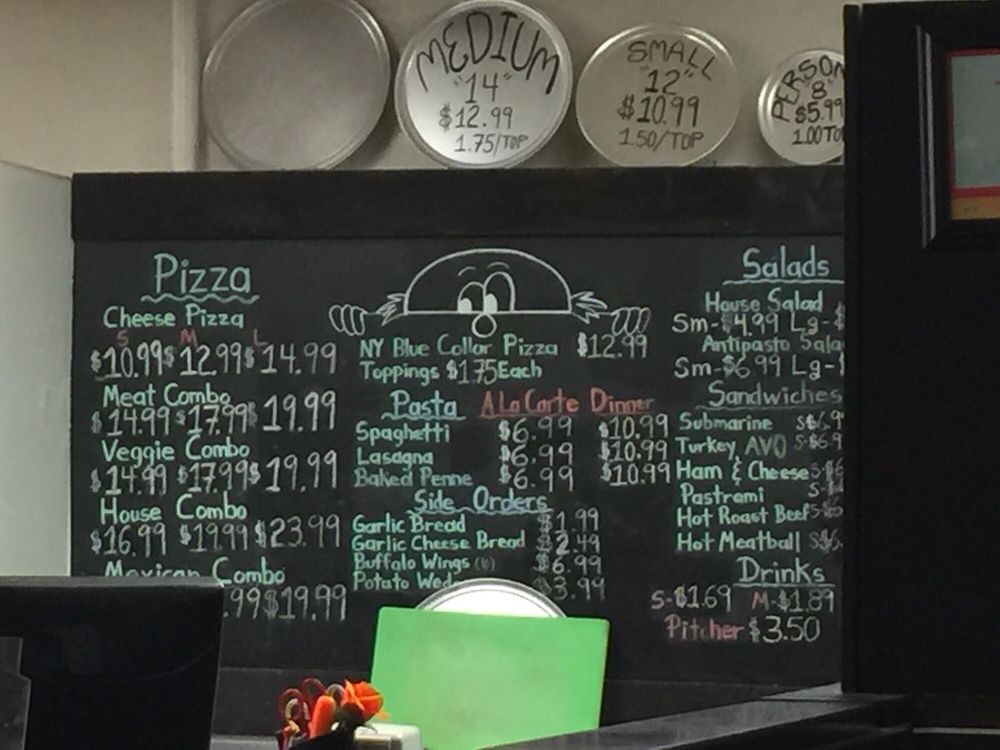 MEDIUM
"14"
$12.99
1.75/TOP
SMALL
"12"
$10.99
1.50/TOP
PERSON
8"
$5.99
1.00 TO
Pizza
Cheese Pizza
S M L
$10.99 $12.99 $14.99
Meat Combo
$14.99 $17.99 $19.99
Veggie Combo
$14.99 $17.99 $19.99
House Combo
$16.99 $19.99 $23.99
Mexican Combo
.99 $19.99
NY Blue Collar Pizza $12.99
Toppings $1.75 Each
Pasta A La Carte Dinner
Spaghetti $6.99 $10.99
Lasagna $6.99 $10.99
Baked Penne $6.99 $10.99
Side Orders
Garlic Bread $1.99
Garlic Cheese Bread $2.49
Buffalo Wings (6) $6.99
Potato Wed $3.99
Salads
House Salad
Sm-$4.99 Lg-$
Antipasto Sala
Sm-$6.99 Lg-$
Sandwiches
Submarine S$6.9
Turkey AVO S-$6.9
Ham & Cheese S-$6
Pastrami S-
Hot Roast Beef S-
Hot Meatball S$6.
Drinks
S-$1.69 M-$1.89
Pitcher $3.50